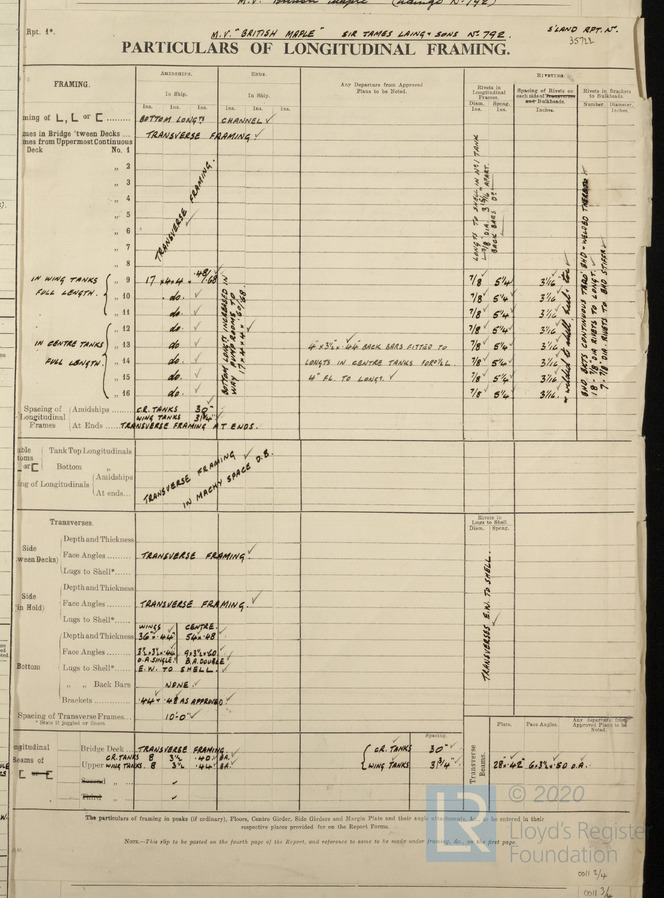 Rpt. 4*.
M.V. "BRITISH MAPLE" SIR JAMES LAING & SONS No. 792.
S'LAND RPT. No.
PARTICULARS OF LONGITUDINAL FRAMING.
FRAMING.
Amidships.
Ends.
Any Departure from Approved
Plans to be Noted.
Riveting.
In Ship.
In Ship.
Rivets in
Longitudinal
Frames.
Spacing of Rivets on
each side of Transverses
and Bulkheads.
Rivets in Brackets
to Bulkheads.
Ins. Ins. Ins. Ins. Ins. Ins.
Diam. Spcng.
Ins. Ins.
Inches.
Number. Diameter,
Inches.
ming of L, L or C
BOTTOM LONGTS CHANNEL
mes in Bridge 'tween Decks
TRANSVERSE FRAMING
mes from Uppermost Continuous
Deck No. 1
" 2
" 3
" 4
" 5
" 6
" 7
" 8
TRANSVERSE FRAMING.
LONGTS TO SHELL IN No 1 TANK
IN WING TANKS
FULL LENGTH.
" 9 17 × 4 × 4 7/8 5 1/4 3 1/16
" 10 do. 7/8 5 1/4 3 1/16
" 11 do. 7/8 5 1/4 3 1/16
" 12 do. 7/8 5 1/4 3 1/16
IN CENTRE TANKS
FULL LENGTH.
" 13 do. 4" × 3 1/2" × .44 BACK BARS FITTED TO 7/8 5 1/4 3 1/16
" 14 do. LONGTS IN CENTRE TANKS FOR 7/8 5 1/4 3 1/16
" 15 do. 4" FL. TO LONGT. 7/8 5 1/4 3 1/16
" 16 do. 7/8 5 1/4 3 1/16
BOTTOM LONGTS INCREASED IN
WAY PUMPROOMS TO
17 × 4 × 4 × .60/.68
Spacing of
Longitudinal
Frames
Amidships
CR. TANKS 30"
WING TANKS 31 3/4"
At Ends
TRANSVERSE FRAMING AT ENDS.
Tank Top Longitudinals
Bottom "
ng of Longitudinals
Amidships
At ends
TRANSVERSE FRAMING
IN MACHY SPACE D.B.
Transverses.
Rivets in
Lugs to Shell.
Diam. Spcng.
Side
ween Decks)
Depth and Thickness
Face Angles
TRANSVERSE FRAMING
Lugs to Shell*
Side
in Hold)
Depth and Thickness
Face Angles
TRANSVERSE FRAMING.
Lugs to Shell*
TRANSVERSES E.W. TO SHELL.
WINGS CENTRE.
Bottom
Depth and Thickness 36" × .44 54 × .48
Face Angles
O.A. SINGLE. B.A. DOUBLE
Lugs to Shell* E.W. TO SHELL.
" " Back Bars NONE.
Brackets .44 & .48 AS APPROVED.
Spacing of Transverse Frames 10'-0"
* State if joggled or liners.
ngitudinal
Beams of
Bridge Deck TRANSVERSE FRAMING
Upper
CR. TANKS 8 3 1/2 .40 BA.
WING TANKS. 8 3 1/2 .44 BA.
Second "
Third "
Spacing.
CR. TANKS 30"
WING TANKS 31 3/4"
Transverse
Beams.
Plate. Face Angles.
Any departure from
Approved Plans to be
Noted.
28" × .42" 6 × 3 1/2 × .50 O.A.
The particulars of framing in peaks (if ordinary), Floors, Centre Girder, Side Girders and Margin Plate and their angle attachments, to be entered in their
respective places provided for on the Report Forms.
NOTE.—This slip to be posted on the fourth page of the Report, and reference to same to be made under framing, &c., on the first page.
LR
© 2020
Lloyd's Register
Foundation
0011 2/4
0011 3/4